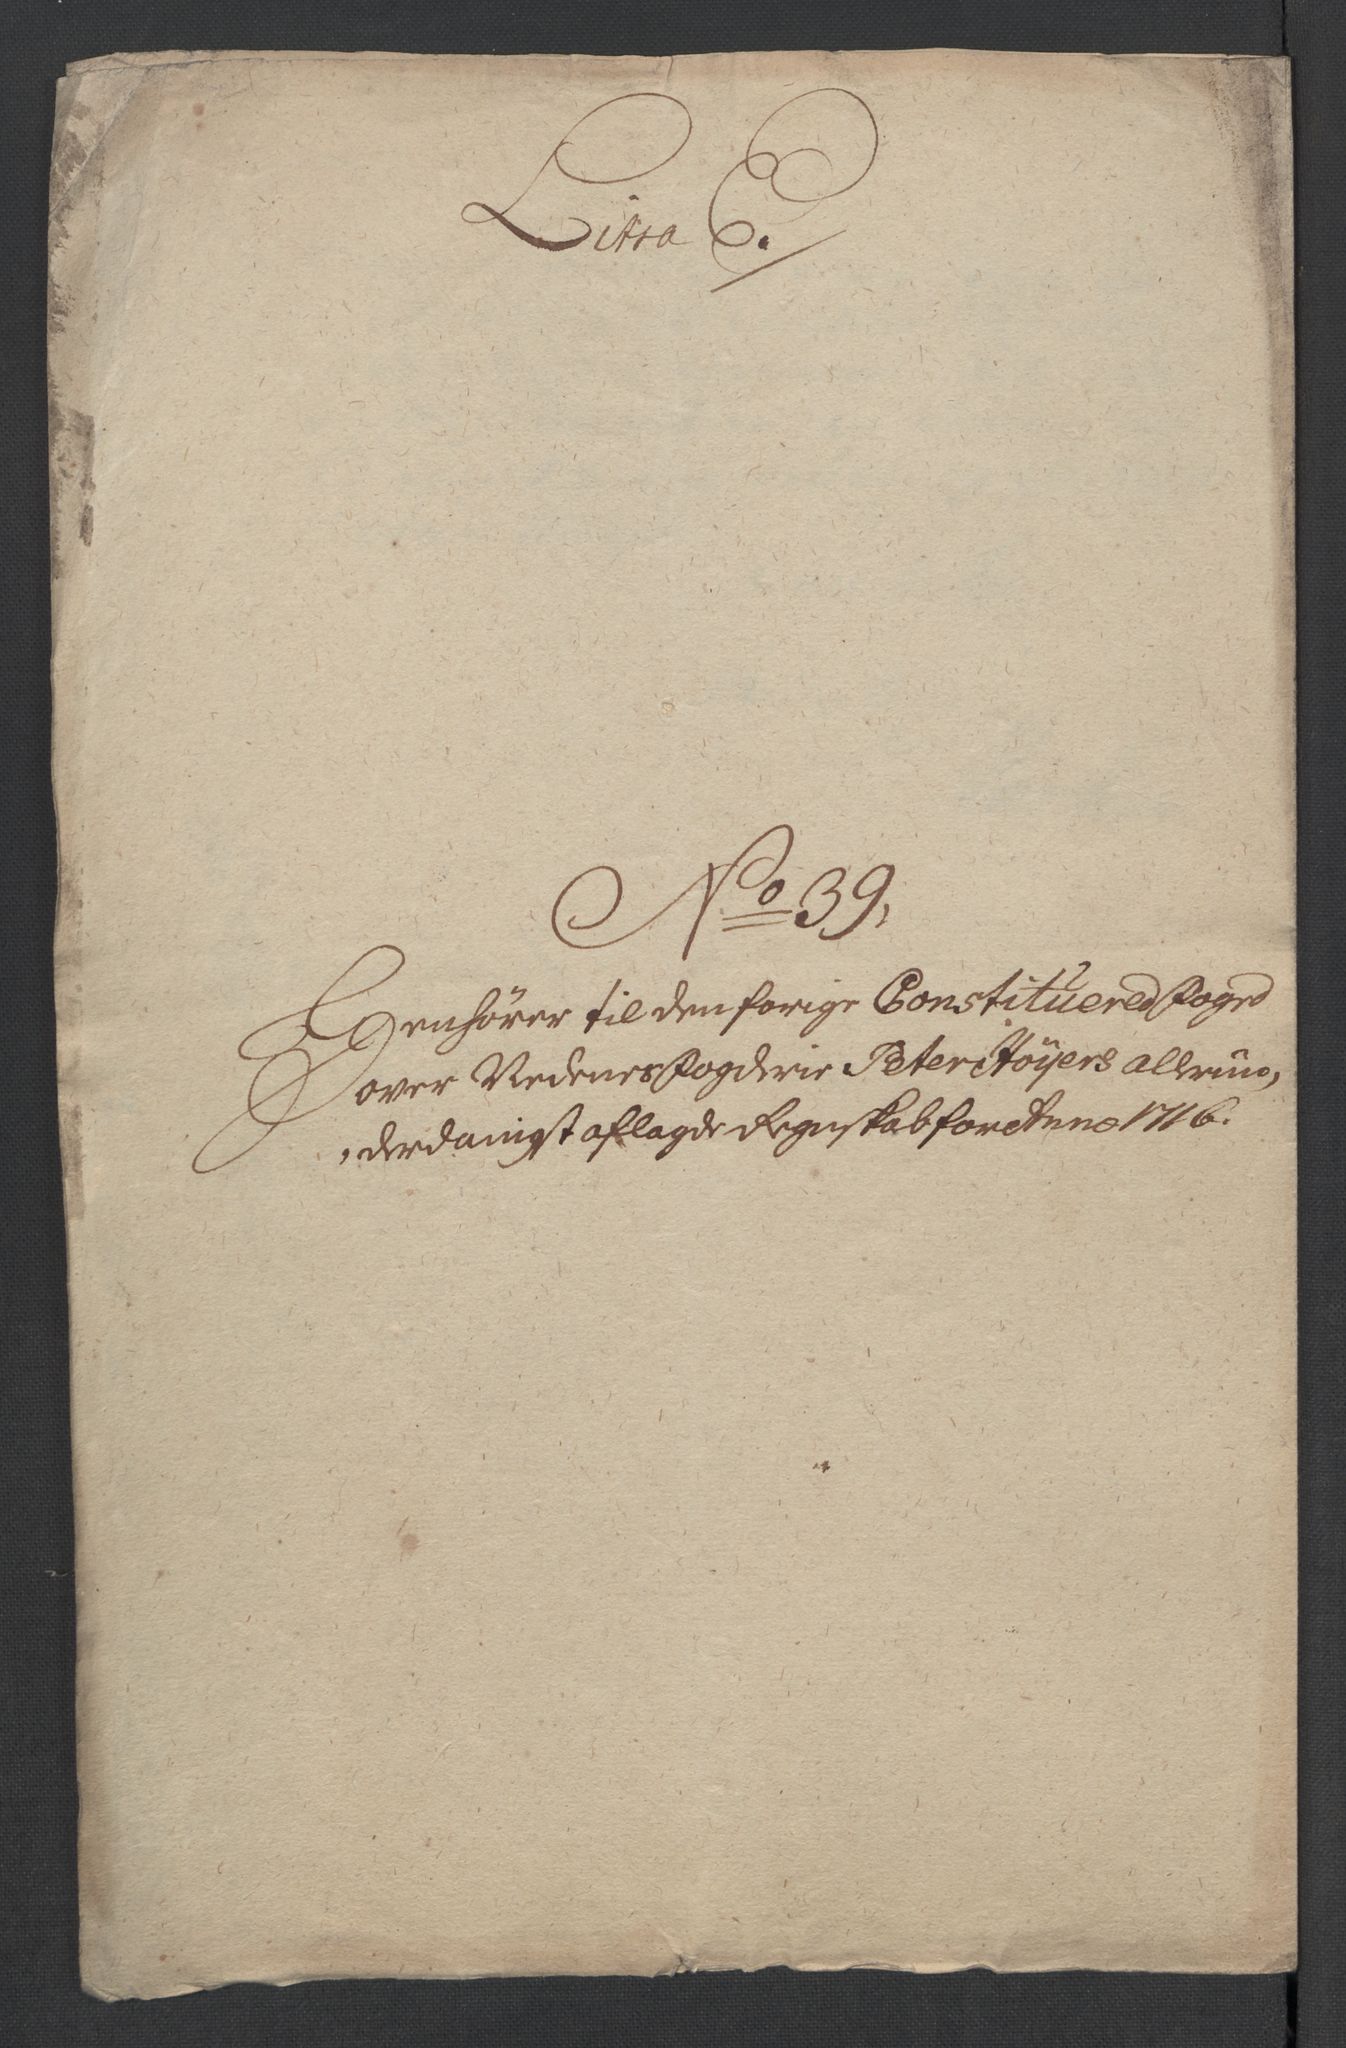 Litra C.
No 39,
Henhörer til den forige Constitüered Foged
over Nedenes Fogderie Peter Höÿers allerun,
,derdanigst aflagde Regnskab for Anno 1716.